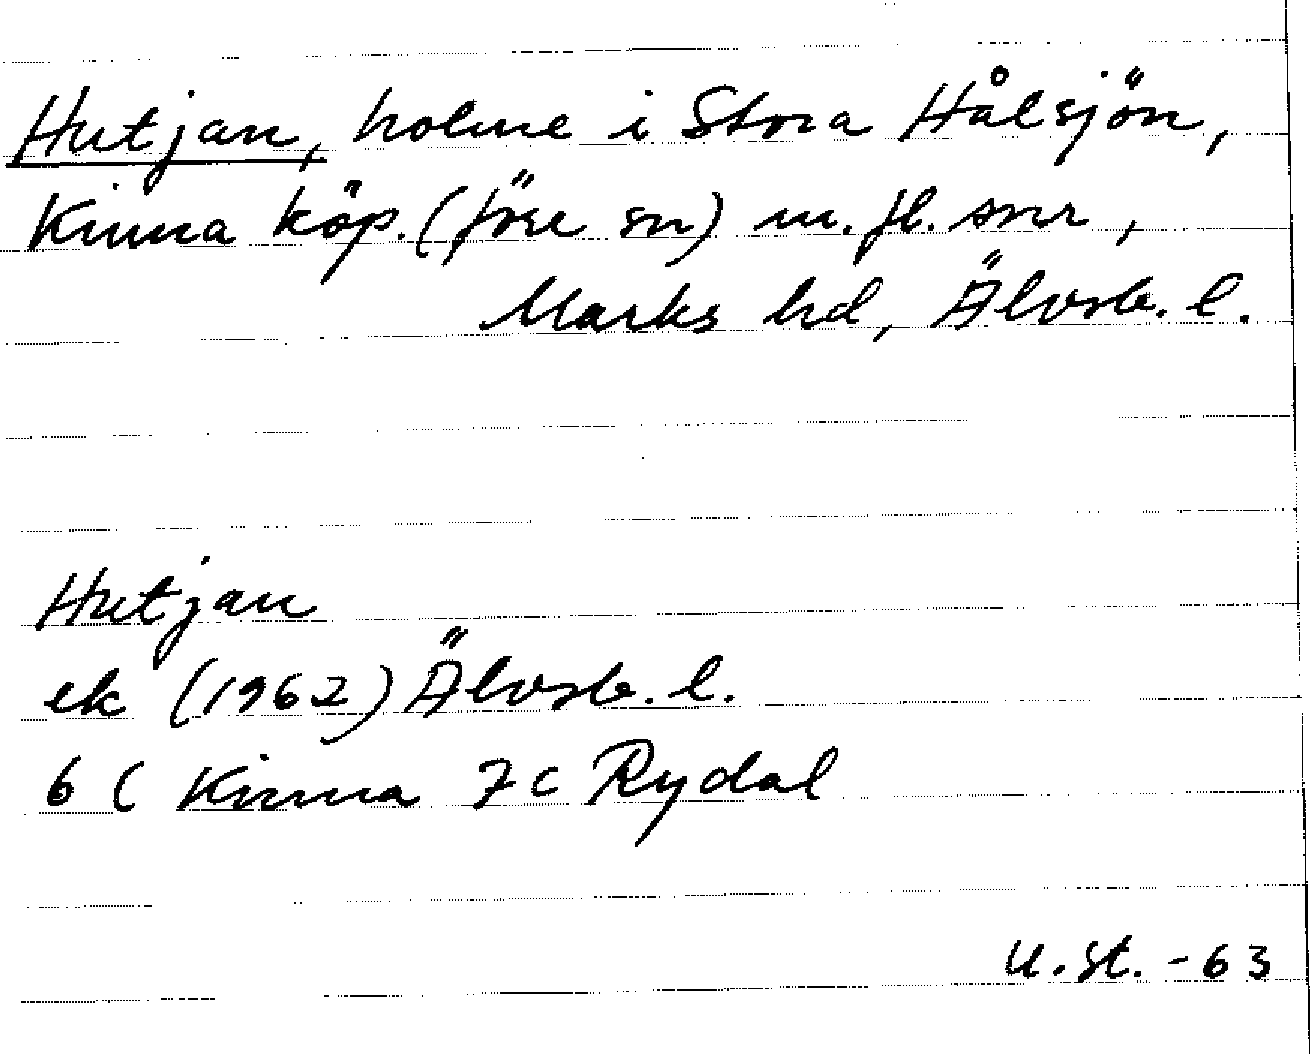 Hutjan, holme i Stora Hålsjön,
Kinna köp. (föse sn) m. fl. snr,
Marks hd, Älvsb. l.
Hutjan
ek (1962) Älvsb. l.
6 C Kinna 7c Rydal
U. St. -63